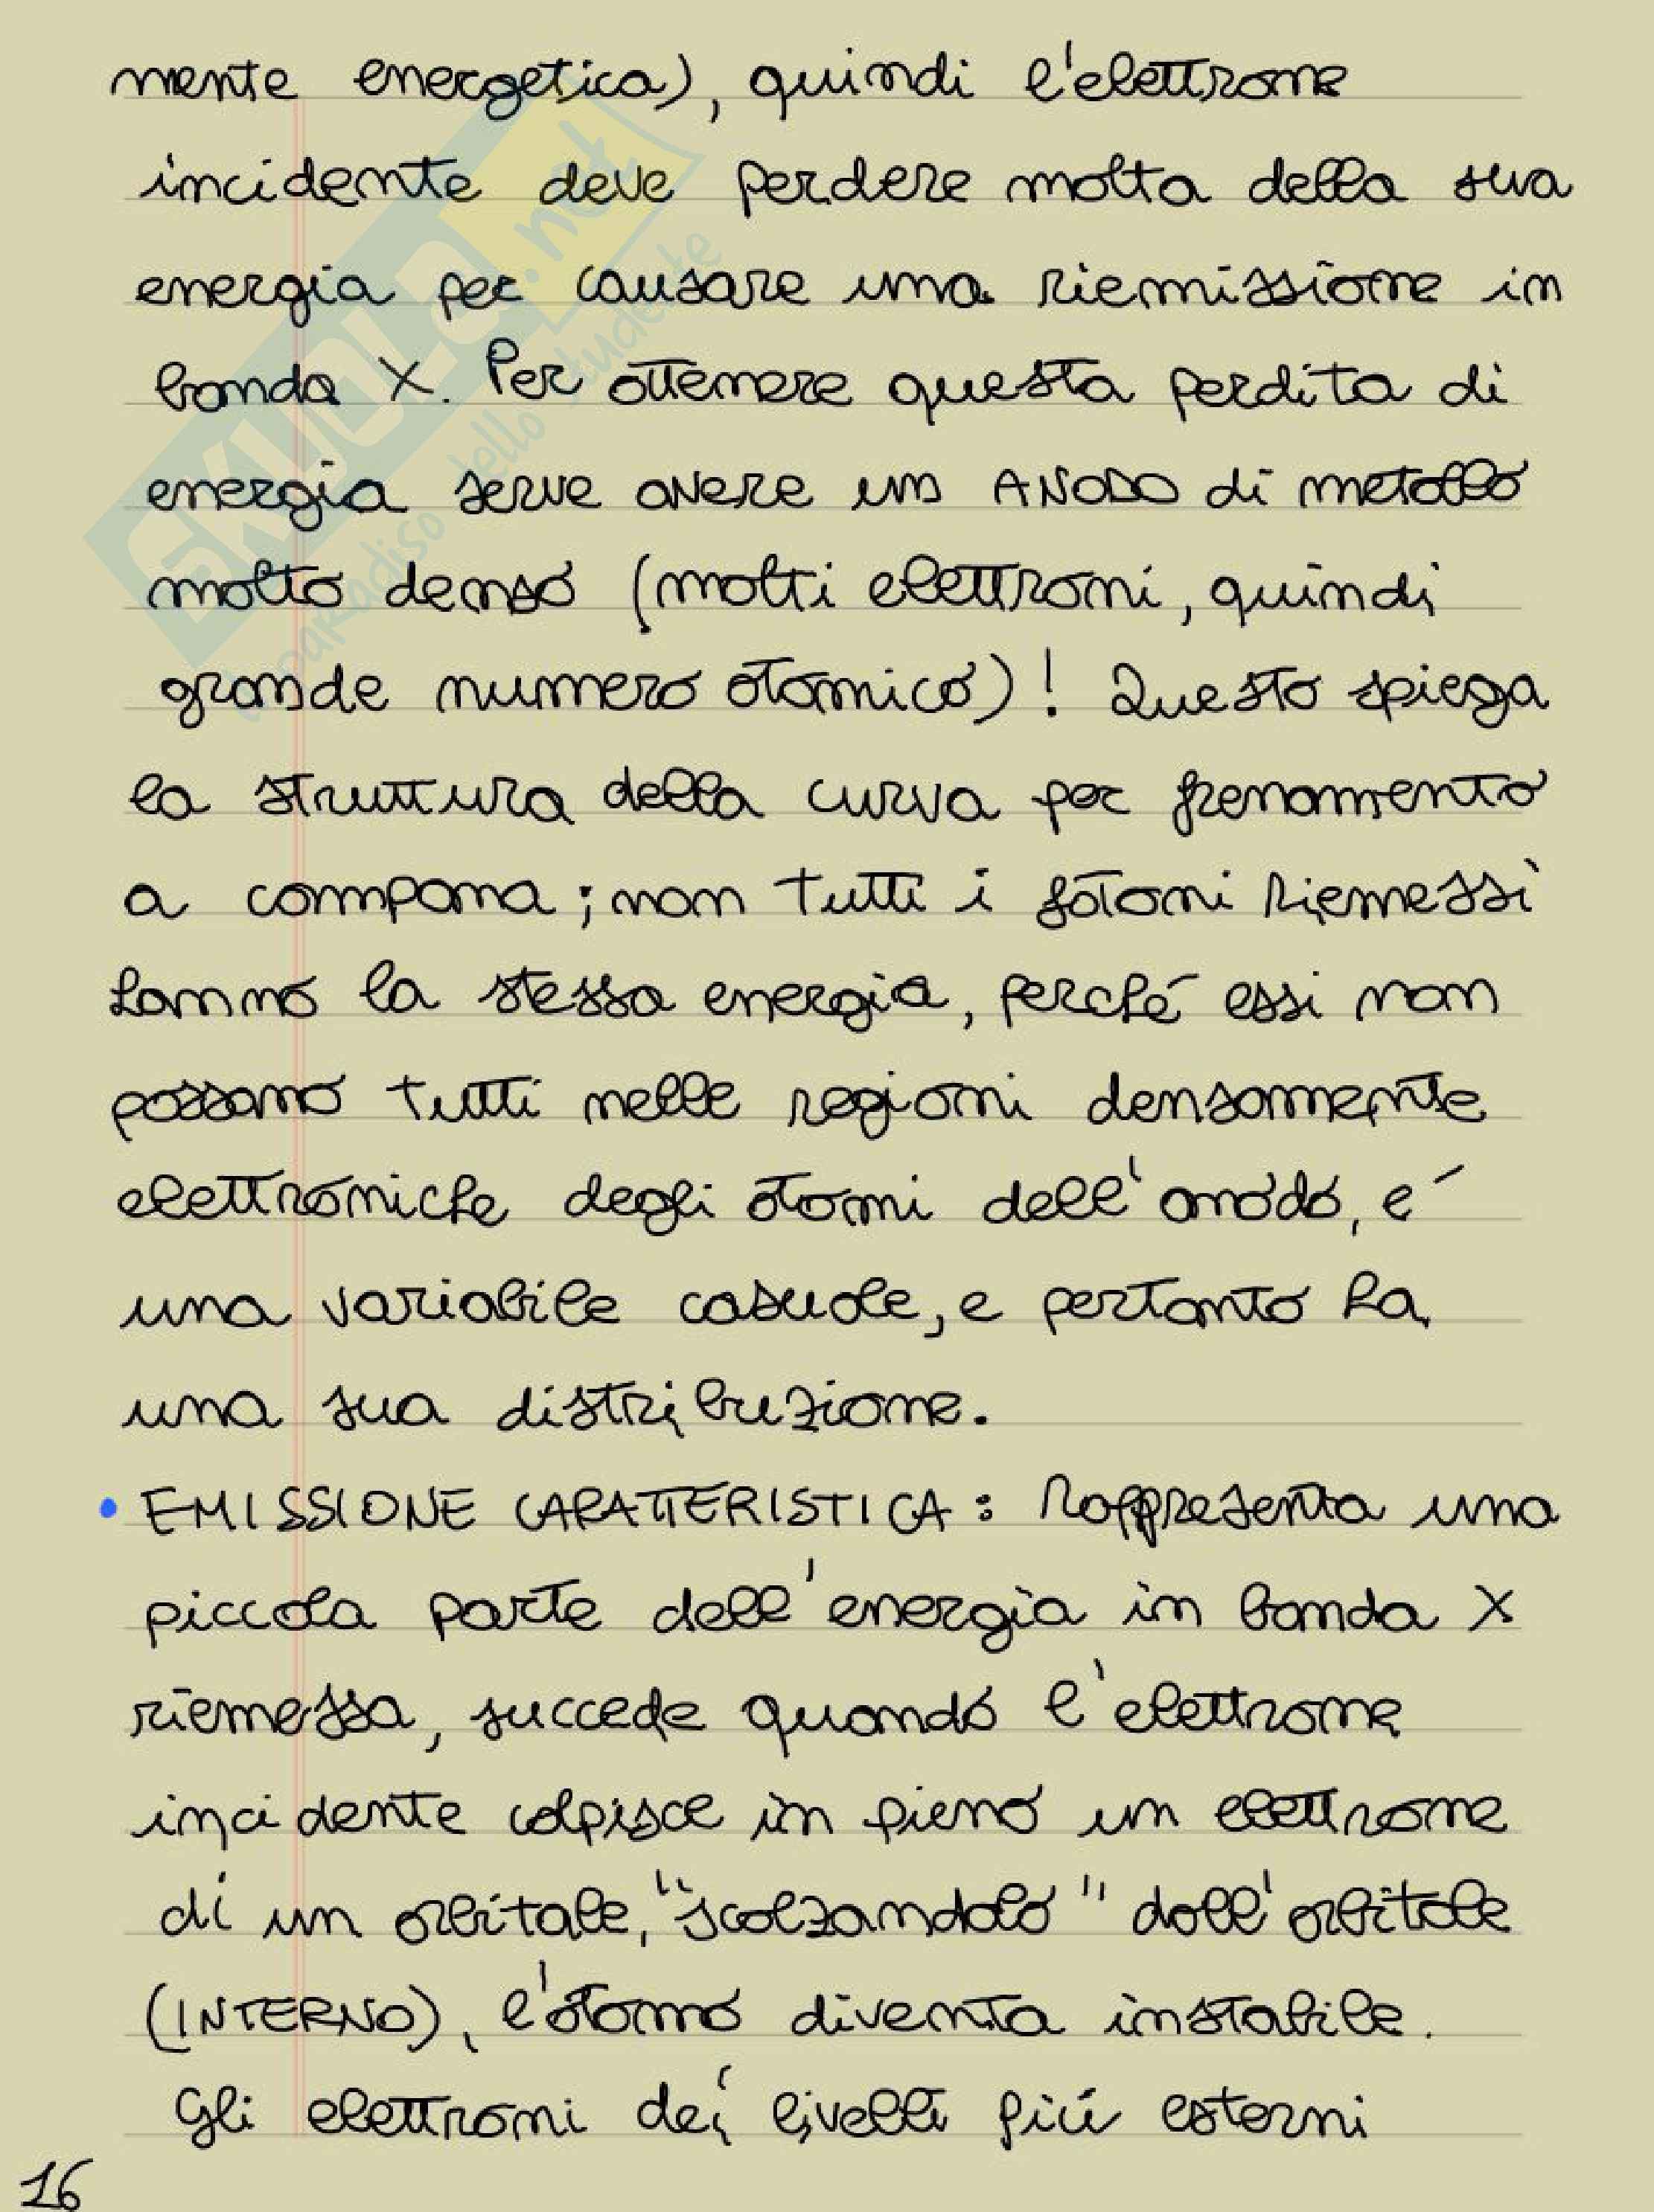 mente energetica), quindi l'elettrone
incidente deve perdere molta della sua
energia per causare una riemissione in
banda X. Per ottenere questa perdita di
energia serve avere un ANODO di metallo
molto denso (molti elettroni, quindi
grande numero atomico)! Questo spiega
la struttura della curva per frenamento
a campana; non tutti i fotoni riemessi
hanno la stessa energia, perché essi non
passano tutti nelle regioni densamente
elettroniche degli atomi dell'anodo, é
una variabile casuale, e pertanto ha
una sua distribuzione.
• EMISSIONE CARATTERISTICA: Rappresenta una
piccola parte dell'energia in banda X
riemessa, succede quando l'elettrone
incidente colpisce in pieno un elettrone
di un orbitale, "scalzandolo" dall'orbitale
(INTERNO), l'atomo diventa instabile.
Gli elettroni dei livelli piú esterni
16
SKUOLA.net
il paradiso dello studente